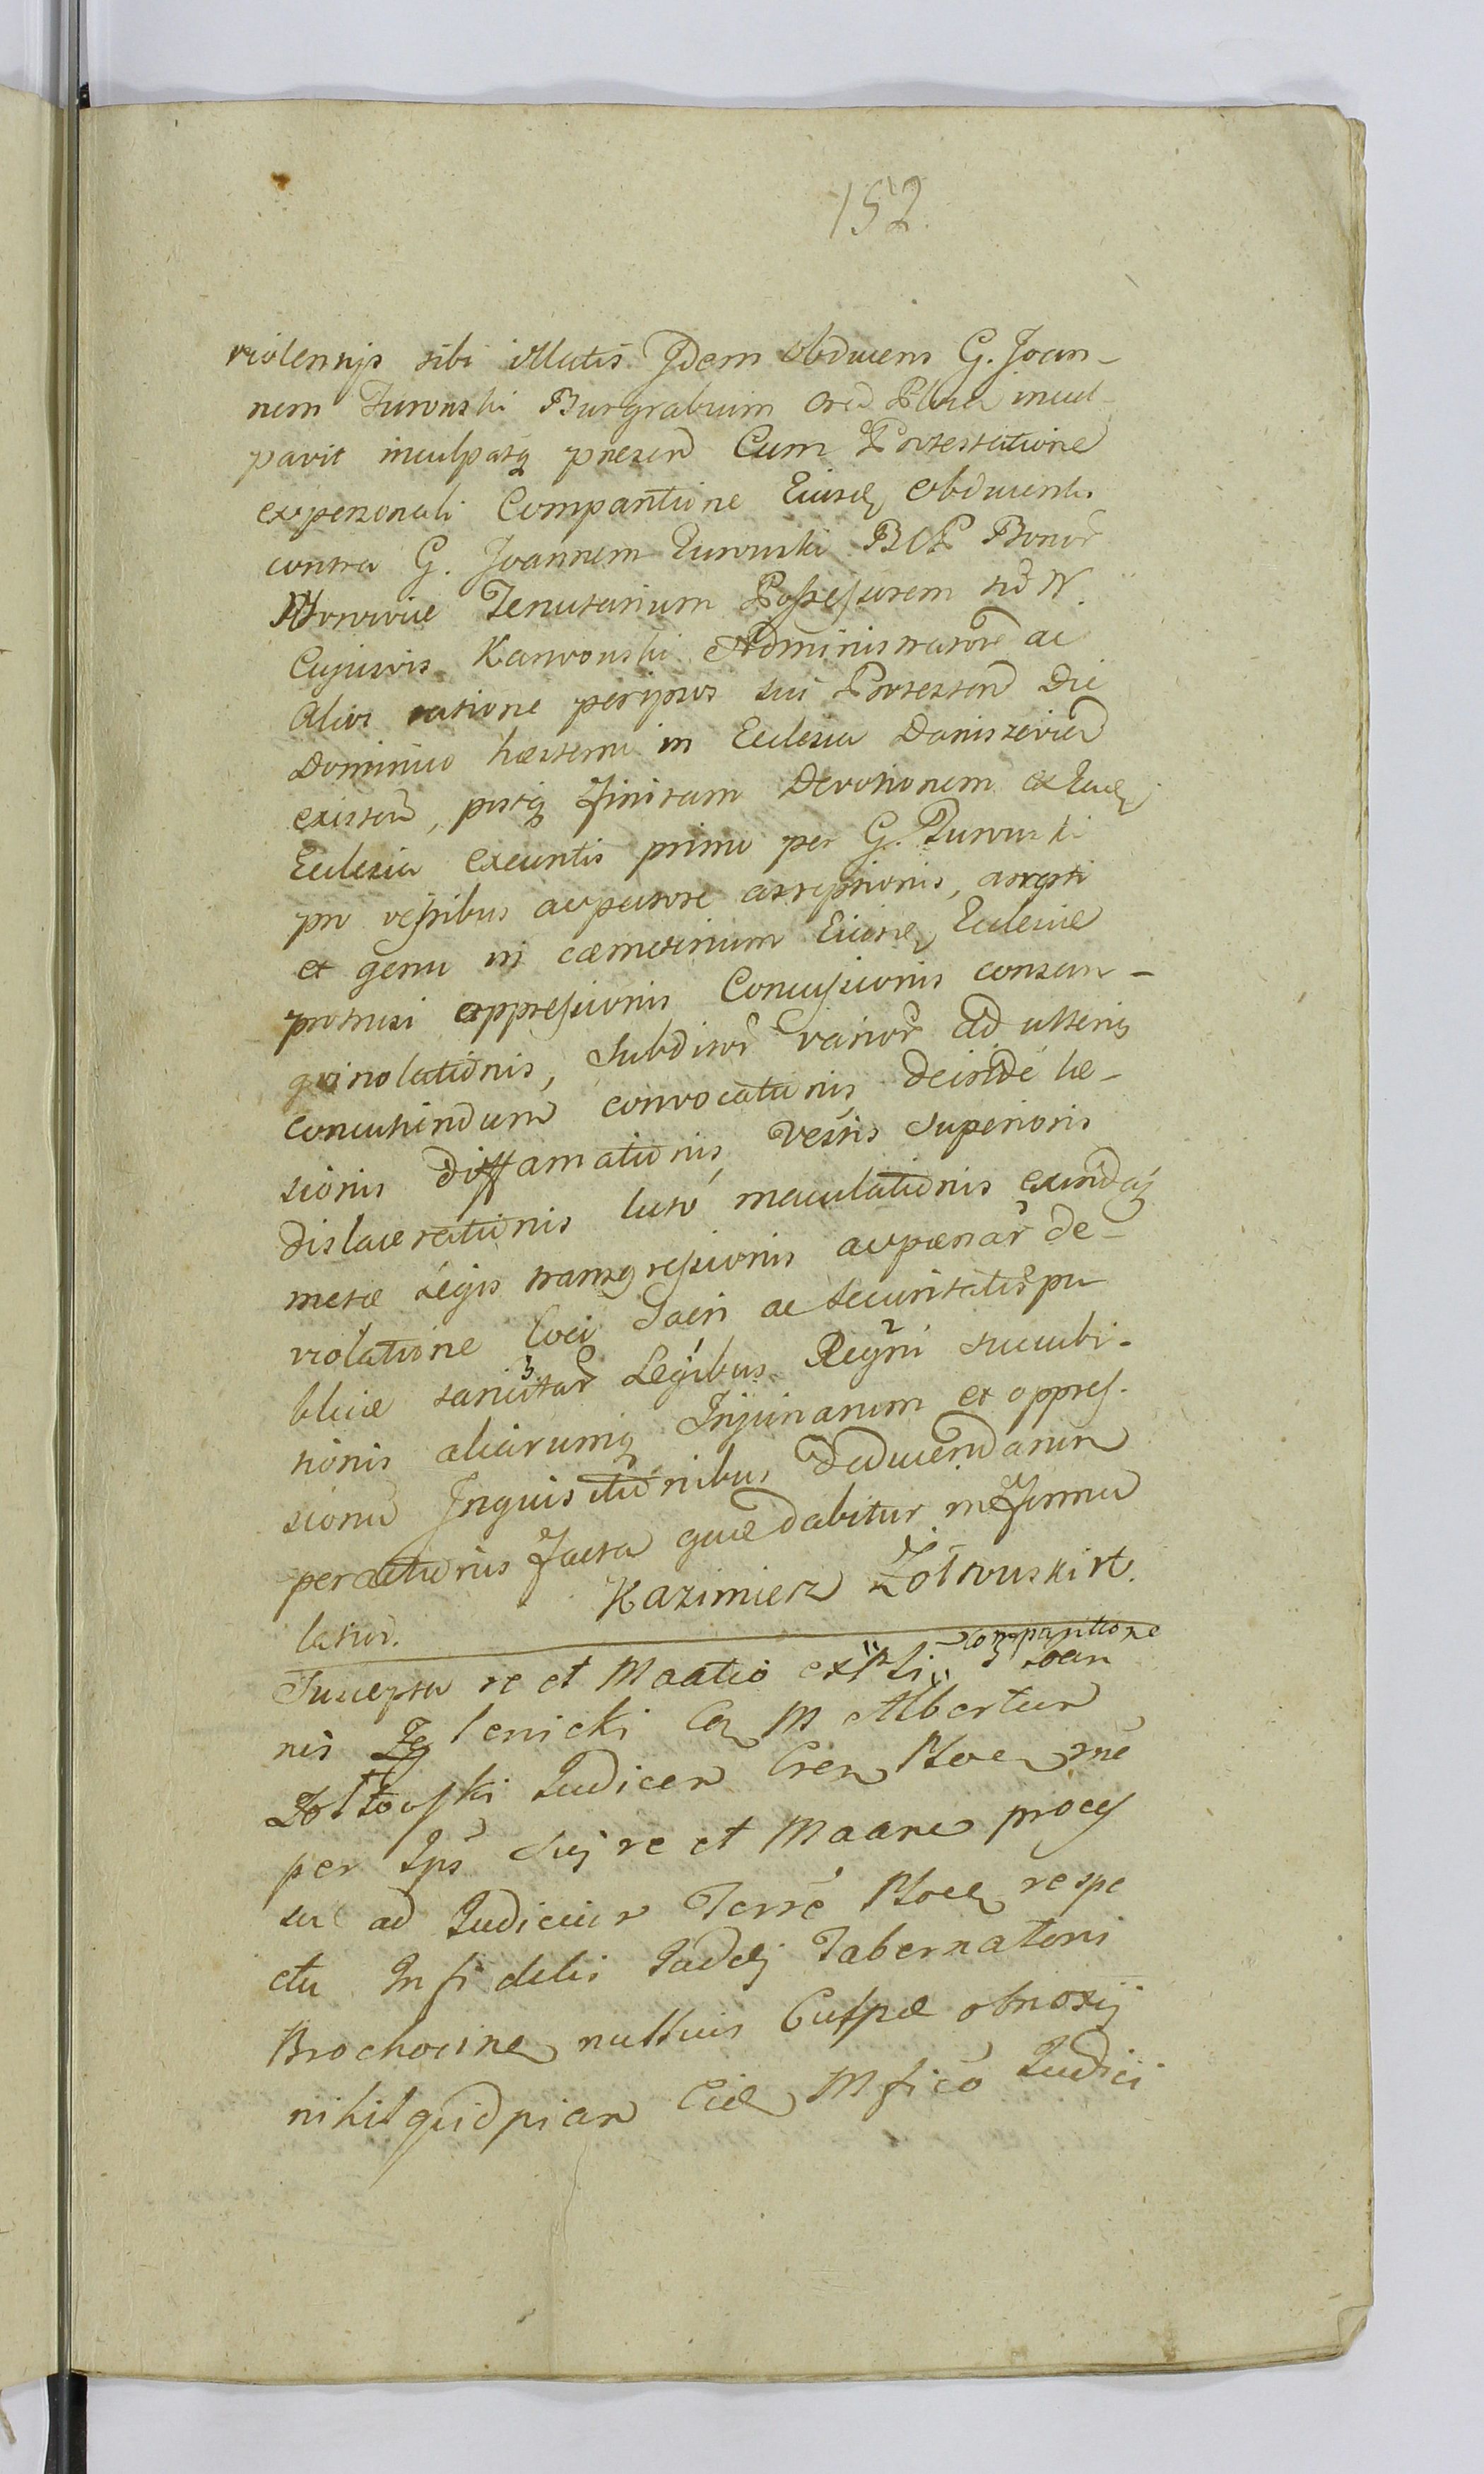 152.
violentijs sibi illatis Idem obducens G. Joan-
nem Turowski Burgrabium Cred Ploceñ incul-
pavit inculpatq presend Cum Protestatione
ex personali Comparitione Eiusd obducentis
contra G. Joannem Turowski BCP Bonor
Tenutarium Possessorem tud N.
Cujusvis Karwowski Administratore ac
Alios ratione per ipsos sui Protestend Die
Dominico hesterno in Ecclesia Daniszeviend
existend, postq finitam Devotionem ex Eade
Ecclesia exeuntis primo per G. Turowski
pro vestibus ac pectore arreptionis, arrepti
et genu in cæmeterium Eiusd Ecclesiæ
protrusi oppressionis Concussionis consan-
guinolationis, subditor varior ad ulterius
concutiendum convocationis deinde læ-
sionis Diffamationis Vestis superioris
dislacerationis luto maculationis exindeq
metæ Legis transgressionis ac pænar de
violatione loci Sacri ac securitatis pu
blicæ sancitar Legibus Regni succubi-
tionis aliarumq Injuriarum et oppres-
sionu Inquisitionibus Deducendarum
peractionis facta quæ dabitur in forma
Kazimierz Zołtowski rt.
lation.
Suscepta re et Maatio ex Pli comparitione Joan
nis Zglenicki Cq M Albertum
Zołtowski Judicem Cren Ploceñ me
per Ips Suj re et Maane proces
su ad Judicium Terre Ploceñ respe
ctu Infidelis Judej Tabernatoris
Brochocine nullius Culpæ obnoxij
nihil quidpiam Cid Mfico Judici